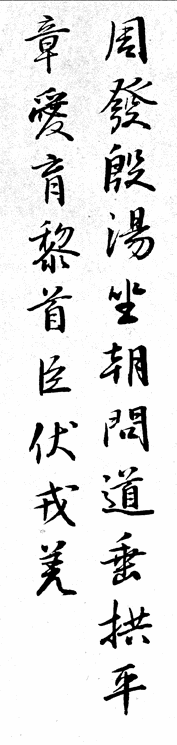 周發殷湯坐朝問道垂拱平
章愛育黎首臣伏戎羌